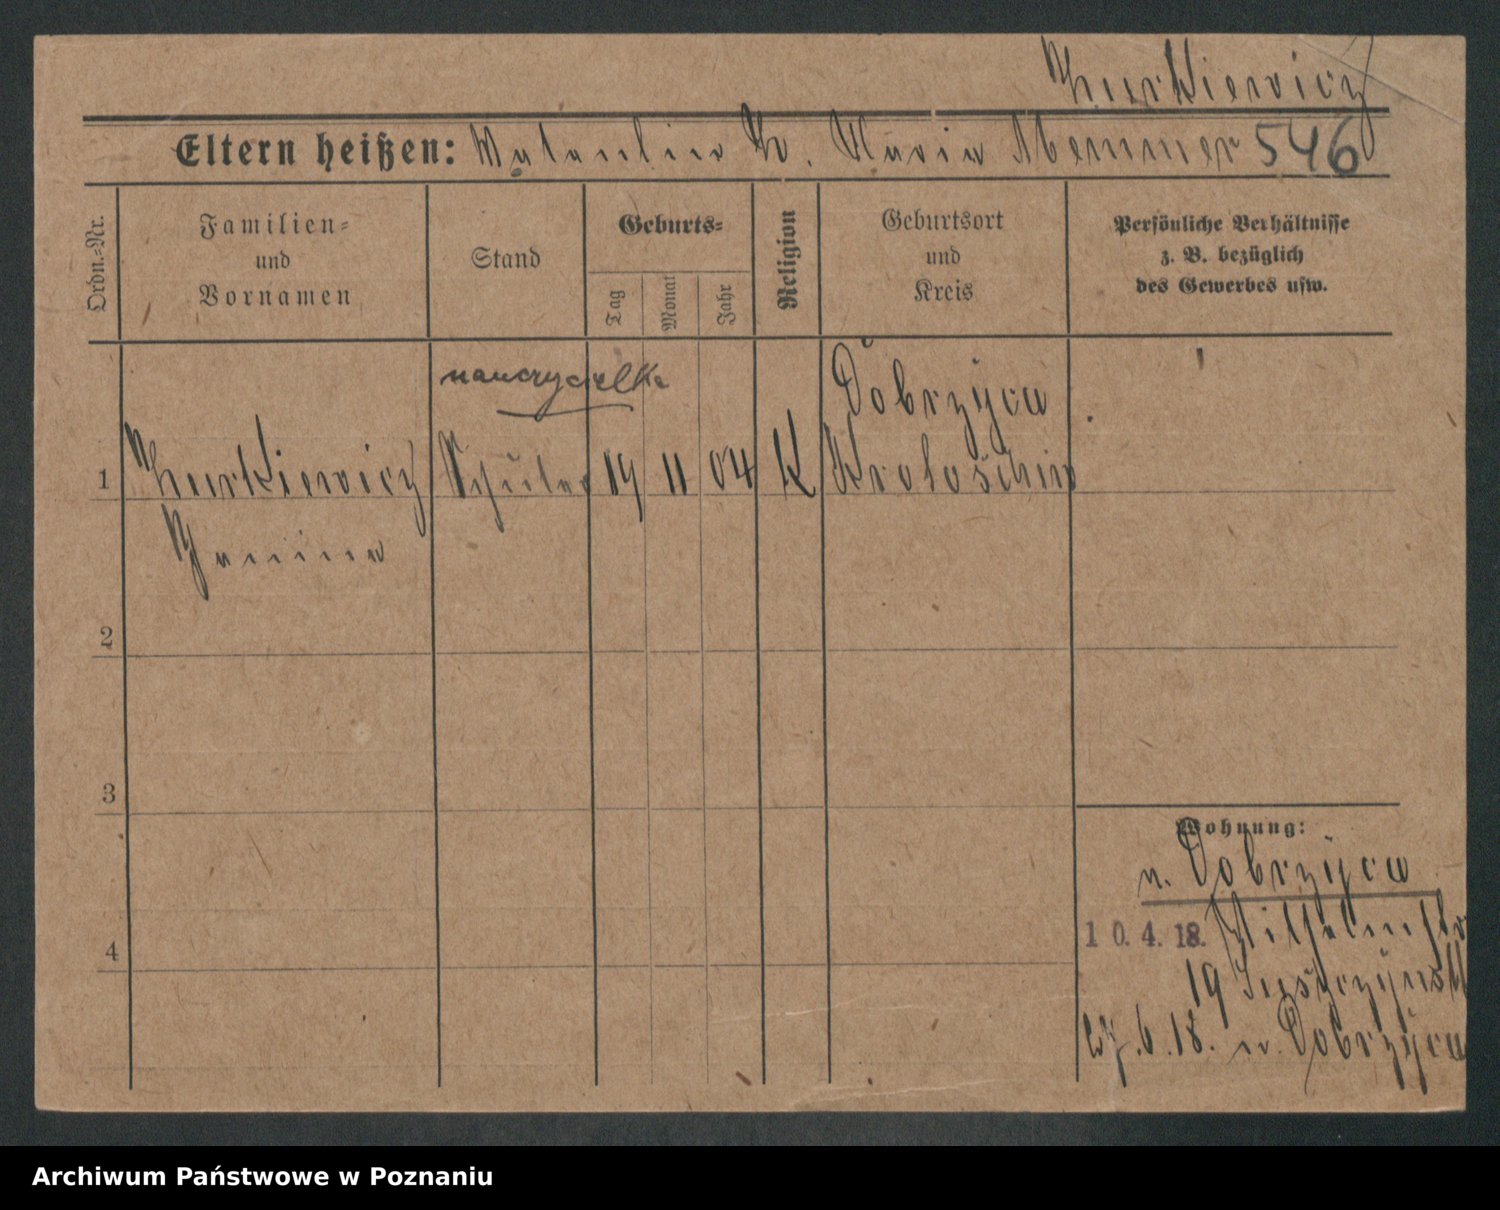 Żurkiewicz
Eltern heißen: Walentin Ż. Maria Memmer 546
Ordn.-Nr.
Familien-
und
Vornamen
Stand
Geburts-
Tag
Monat
Jahr
Religion
Geburtsort
und
Kreis
Persönliche Verhältnisse
z. B. bezüglich
des Gewerbes usw.
nauczycielka
Dobrzyca
1 Żurkiewicz Schüler 19 11 04 K Krotoschin
Janina
2
3
Wohnung:
n. Dobrzyca
10. 4. 18. Wilhelmstr
4
19
6. 18. n. Dobrzyca
Archiwum Państwowe w Poznaniu